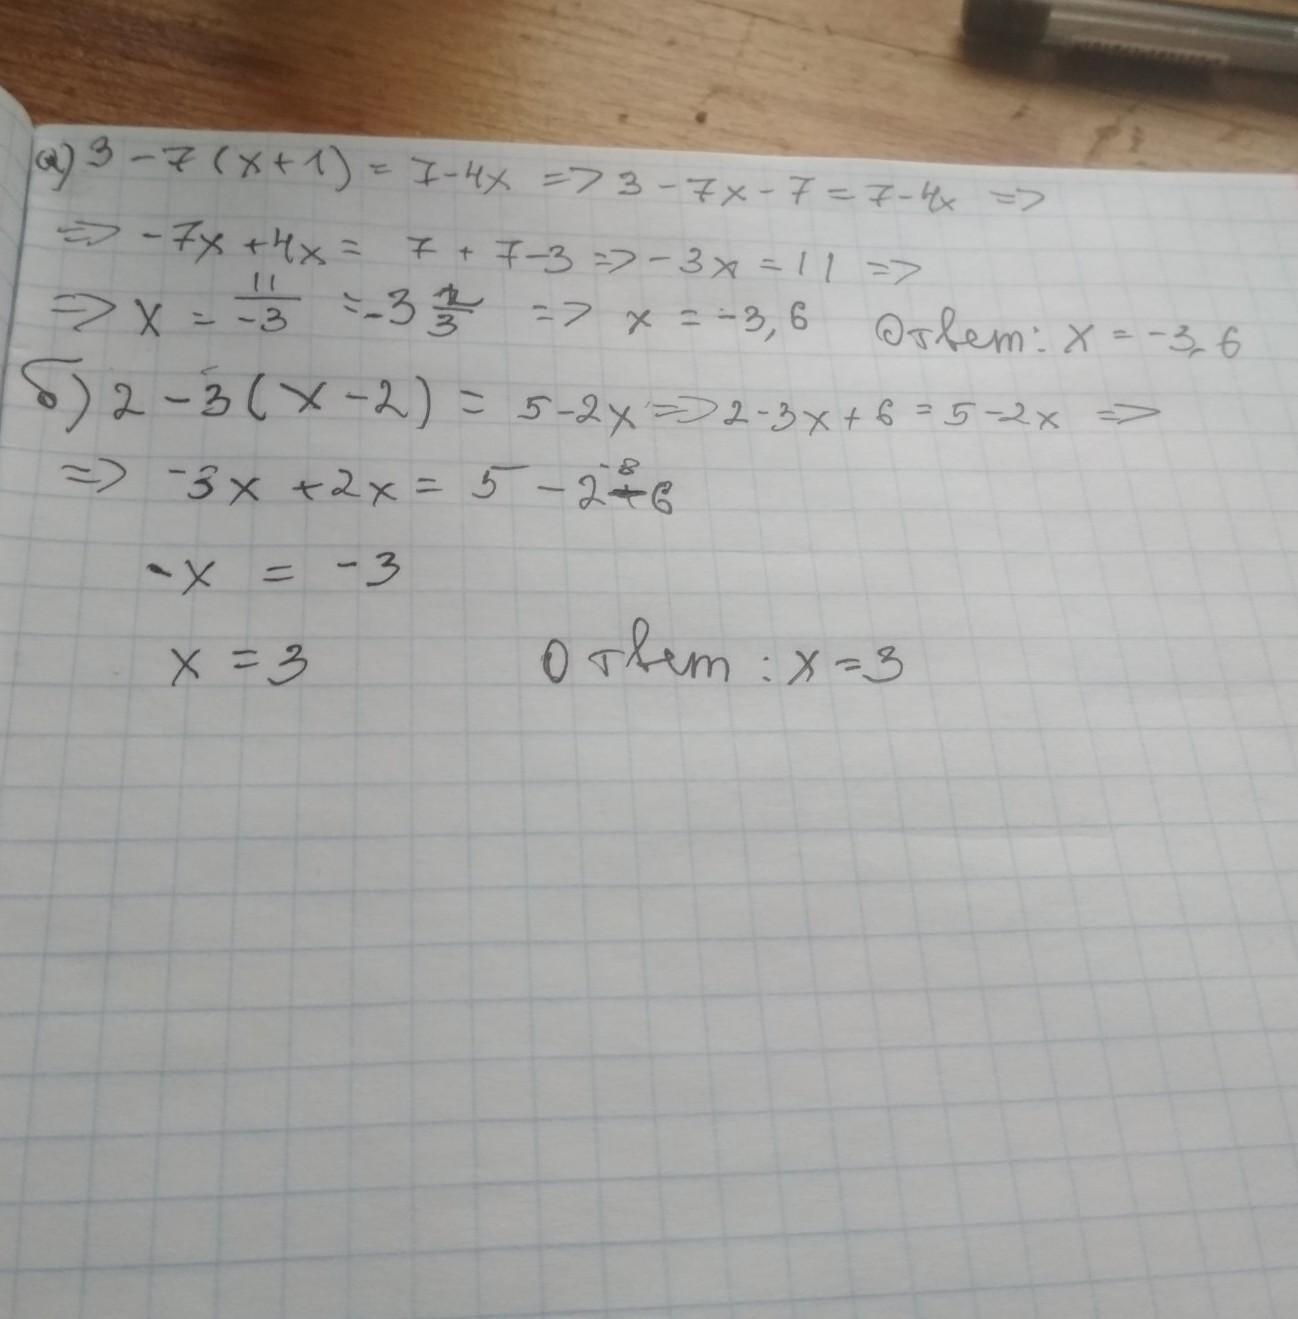 а) 3 - 7 (x + 1) = 7 - 4x => 3 - 7x - 7 = 7 - 4x =>
=> -7x + 4x = 7 + 7 - 3 => -3x = 11 =>
=> x = 11/-3 = -3 2/3 => x = -3,6 Ответ: x = -3,6
б) 2 - 3 (x - 2) = 5 - 2x => 2 - 3x + 6 = 5 - 2x =>
=> -3x + 2x = 5 - 2 - 6
-x = -3
x = 3 Ответ: x = 3